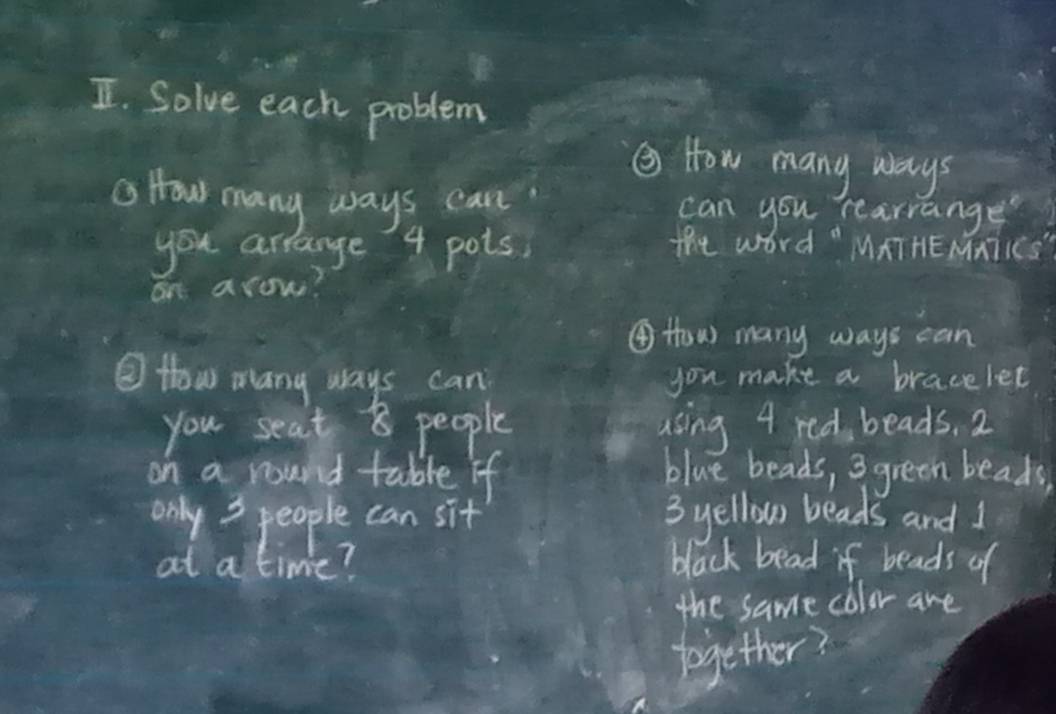 II. Solve each problem
① How many ways can
you arrange 4 pots
on a row?
② How many ways can
you seat 8 people
on a round table if
only 3 people can sit
at a time?
③ How many ways
can you "rearrange"
the word "MATHEMATICS"
④ How many ways can
you make a bracelet
using 4 red beads, 2
blue beads, 3 green beads,
3 yellow beads and 1
black bead if beads of
the same color are
together?